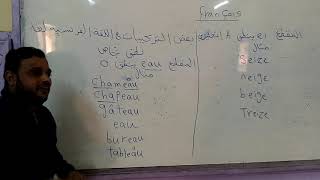 Français
بعض التركيبات في اللغة الفرنسية لها
نطق خاص
المقطع eau ينطق o
مثال
chameau
chapeau
gâteau
eau
bureau
tableau
المقطع ei ينطق
مثال
Seize
neige
beige
Treize